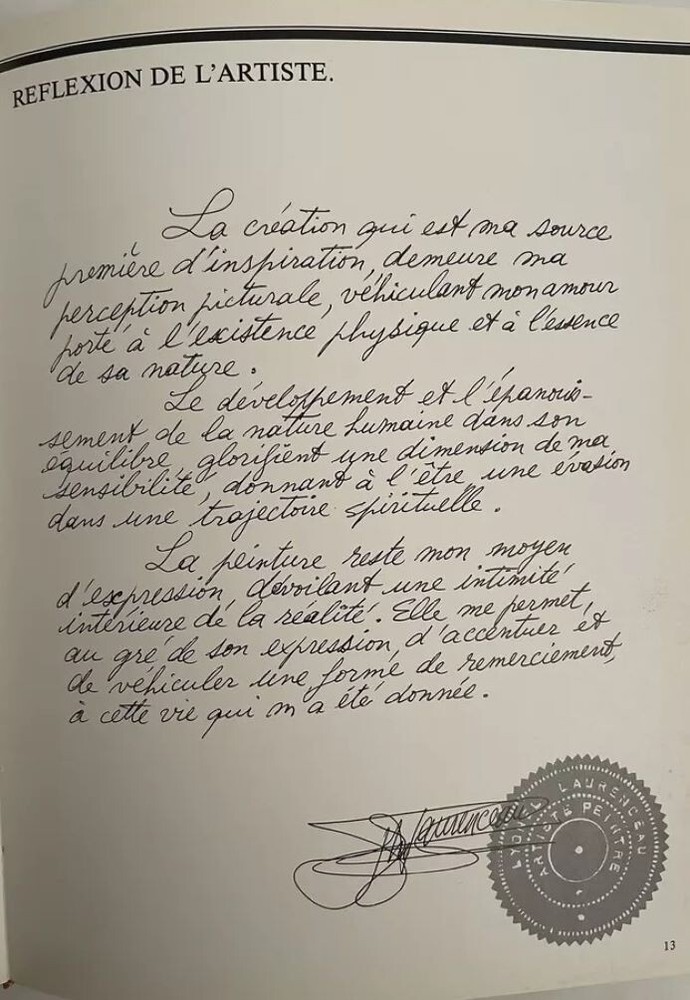 REFLEXION DE L'ARTISTE.
La création qui est ma source
première d'inspiration, demeure ma
perception picturale, véhiculant mon amour
porté à l'existence physique et à l'essence
de sa nature.
Le développement et l'épanouis-
sement de la nature humaine dans son
équilibre, glorifient une dimension de ma
sensibilité, donnant à l'être, une évasion
dans une trajectoire spirituelle.
La peinture reste mon moyen
d'expression, dévoilant une intimité
intérieure de la réalité. Elle me permet,
au gré de son expression, d'accentuer et
de véhiculer une forme de remerciement,
à cette vie qui m'a été donnée.
Laurenceau
LAURENCEAU
ARTISTE PEINTRE
13